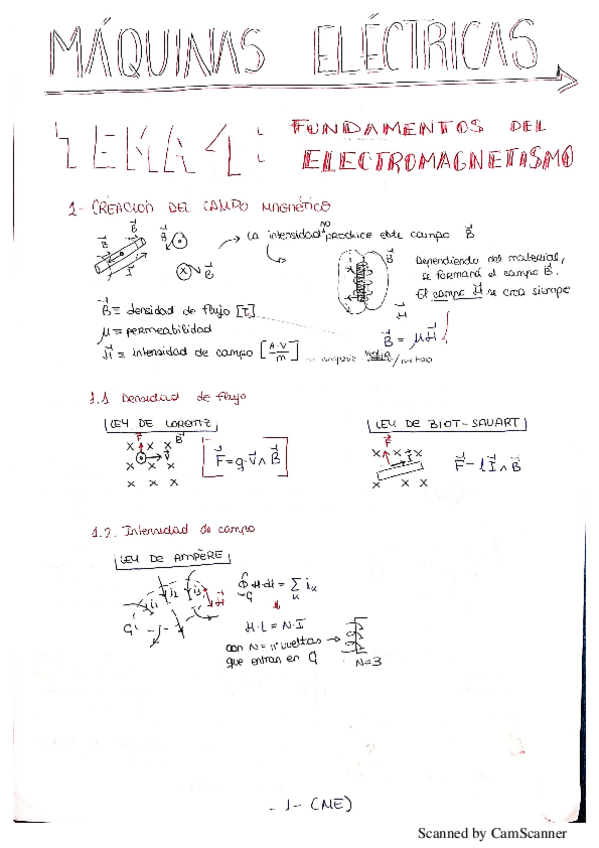 MÁQUINAS ELÉCTRICAS
TEMA 1: FUNDAMENTOS DEL
ELECTROMAGNETISMO
1- CREACIÓN DEL CAMPO MAGNÉTICO
La intensidad no produce este campo B⃗
Dependiendo del material,
se formará el campo B⃗.
El campo H⃗ se crea siempre
B⃗ = densidad de flujo [T]
μ = permeabilidad
H⃗ = intensidad de campo [A·V/m]
B⃗ = μH⃗
1.1 Densidad de flujo
LEY DE LORENTZ
LEY DE BIOT-SAVART
F⃗ = q·v⃗ ∧ B⃗
F⃗ = l I⃗ ∧ B⃗
1.2. Intensidad de campo
LEY DE AMPÈRE
i1 i2 i3 H⃗
∮ H·dl = Σ iₖ
H·l = N·I
con N = nº vueltas
que entran en G
N=3
- 1 - (ME)
Scanned by CamScanner